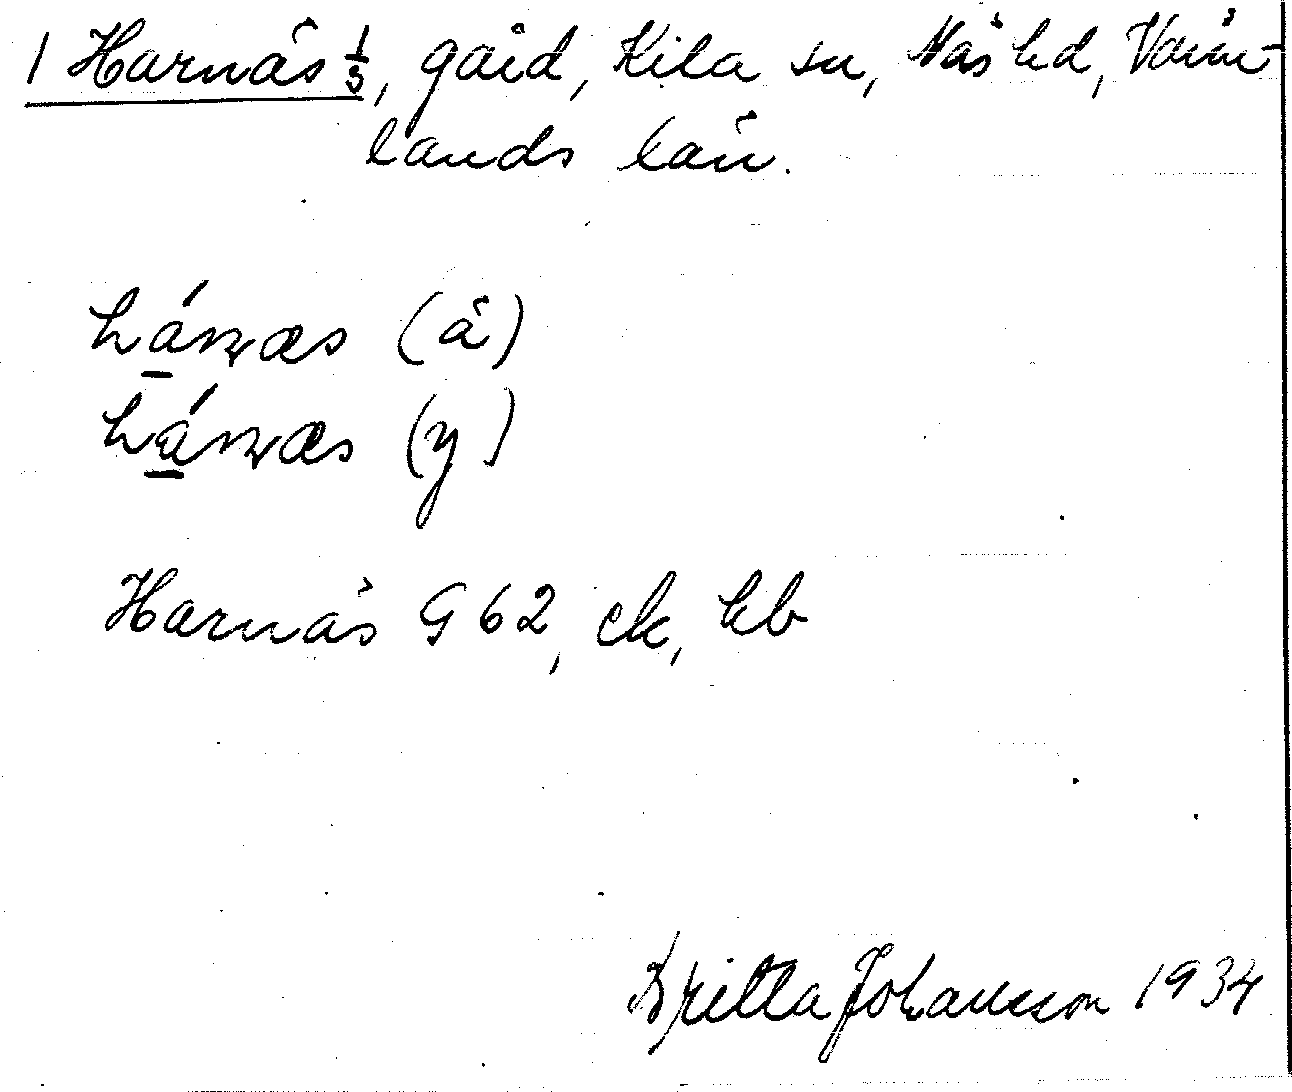 1 Harnäs 1/3, gård, Kila sn, Näs hd, Värm-
lands län.
(ä)
(y)
Harnäs G 62, ek, hb
Britta Johansson 1934